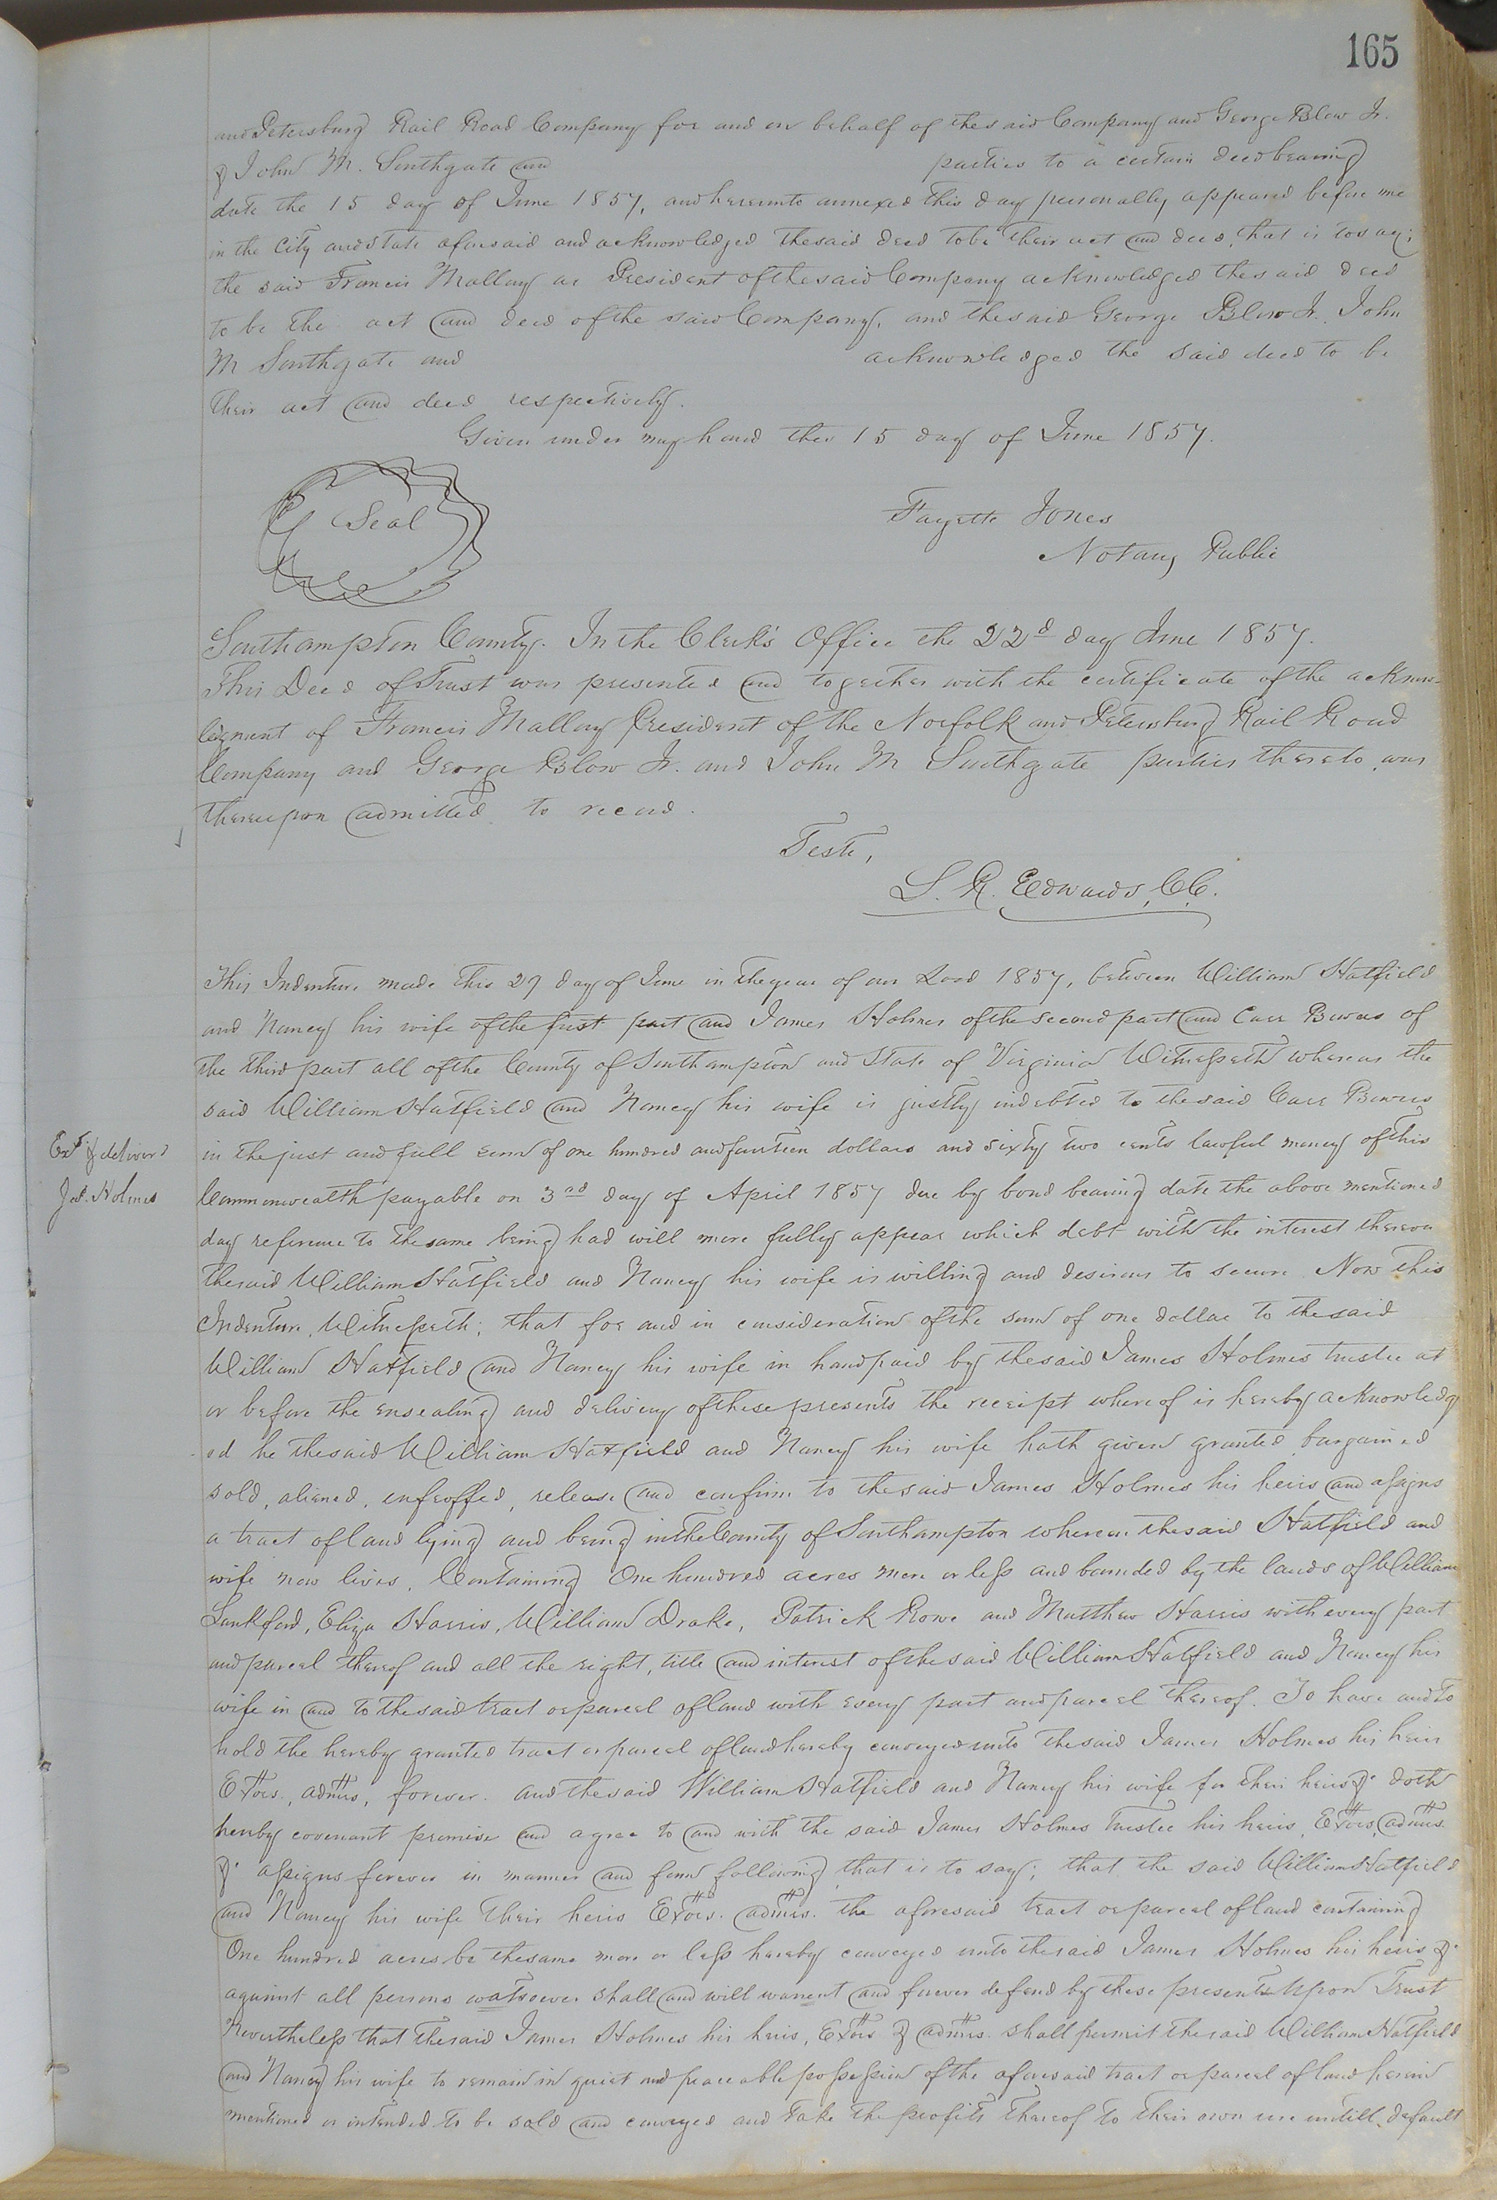 165
and Petersburg Rail Road Company for and on behalf of the said Company and George Blow Jr.
& John M. Southgate and parties to a certain deed bearing
date the 15 day of June 1857, and hereunto annexed this day personally appeared before me
in the City and State aforesaid and acknowledged the said deed to be their act and deed, that is to say;
the said Francis Mallory as President of the said Company acknowledged the said deed
to be the act and deed of the said Company, and the said George Blow Jr. John
M Southgate and acknowledged the said deed to be
their act and deed respectively.
Given under my hand this 15 day of June 1857.
Seal
Fayette Jones
Notary Public
Southampton County. In the Clerk's Office the 22d day June 1857.
This Deed of Trust was presented and together with the certificate of the acknow-
legment of Francis Mallory President of the Norfolk and Petersburg Rail Road
Company and George Blow Jr. and John M Southgate parties thereto was
thereupon admitted to record.
Teste,
L. R. Edwards, C.C.
This Indenture made this 27 day of June in the year of our Lord 1857, between William Hatfield
and Nancy his wife of the first part and James Holmes of the second part and Carr Bowers of
the third part all of the County of Southampton and State of Virginia Witnesseth whereas the
said William Hatfield and Nancy his wife is justly indebted to the said Carr Bowers
Exd & deliverd
in the just and full sum of one hundred and fourteen dollars and sixty two cents lawful money of this
Jas. Holmes
Commonwealth payable on 3rd day of April 1857 due by bond bearing date the above mentioned
day reference to the same being had will more fully appear which debt with the interest thereon
the said William Hatfield and Nancy his wife is willing and desirous to secure. Now this
Indenture, Witnesseth; that for and in consideration of the sum of one dollar to the said
William Hatfield and Nancy his wife in hand paid by the said James Holmes trustee at
or before the ensealing and delivery of these presents the receipt whereof is hereby acknowledg
ed he the said William Hatfield and Nancy his wife hath given granted bargained
sold, aliened, enfeoffed, release and confirm to the said James Holmes his heirs and assigns
a tract of land lying and being in the County of Southampton whereon the said Hatfield and
wife now lives, Containing One hundred acres more or less and bounded by the lands of William
Lankford, Eliza Harris, William Drake, Patrick Rowe and Matthew Harris with every part
and parcel thereof and all the right, title and interest of the said William Hatfield and Nancy his
wife in and to the said tract or parcel of land with every part and parcel thereof. To have and to
hold the hereby granted tract or parcel of land hereby conveyed unto the said James Holmes his heirs
Exors., admrs, forever. and the said William Hatfield and Nancy his wife for their heirs &. doth
hereby covenant promise and agree to and with the said James Holmes trustee his heirs, Exors, admrs.
&. assigns forever in manner and form following, that is to say; that the said William Hatfield
and Nancy his wife their heirs Exors. admrs. the aforesaid tract or parcel of land containing
One hundred acres be the same more or less hereby conveyed unto the said James Holmes his heirs &.
against all persons watsoever shall and will warrent and forever defend by these presents Upon Trust
Nevertheless that the said James Holmes his heirs, Exors & admrs. shall permit the said William Hatfield
and Nancy his wife to remain in quiet and peaceable possession of the aforesaid tract or parcel of land herein
mentioned or intended to be sold and conveyed and take the profits thereof to their own use untill default